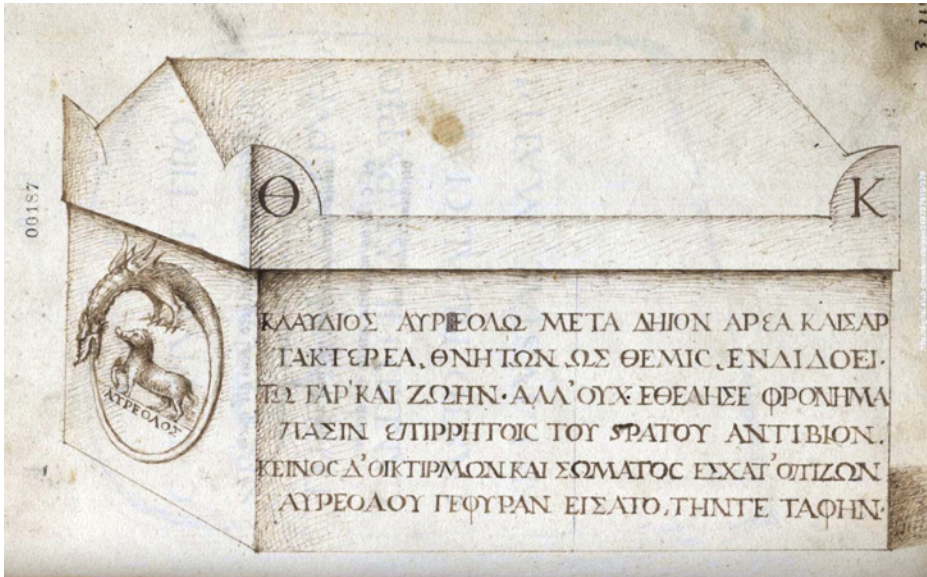 00187
Θ Κ
ΚΛΑΥΔΙΟΣ ΑΥΡΕΟΛΩ ΜΕΤΑ ΔΗΙΟΝ ΑΡΕΑ ΚΑΙΣΑΡ
ΤΑΚΤΕΡΕΑ, ΘΝΗΤΩΝ ΩΣ ΘΕΜΙC, ΕΝΔΙΔΟΕΙ·
ΤΩ ΓΑΡ' ΚΑΙ ΖΩΗΝ· ΑΛΛ' ΟΥΧ· ΕΘΕΛΗΣΕ ΦΡΟΝΗΜΑ
ΠΑΣΙΝ ΕΠΙΡΡΗΤΟΙC ΤΟΥ SΡΑΤΟΥ ΑΝΤΙΒΙΟΝ.
ΚΕΙΝΟC Δ' ΟΙΚΤΙΡΜΩΝ ΚΑΙ ΣΩΜΑΤΟC ΕΣΧΑΤ' ΟΠΙΖΩΝ
ΑΥΡΕΟΛΟΥ ΓΕΦΥΡΑΝ ΕΙΣΑΤΟ, ΤΗΝΤΕ ΤΑΦΗΝ·
ΑΥΡΕΟΛΟΣ